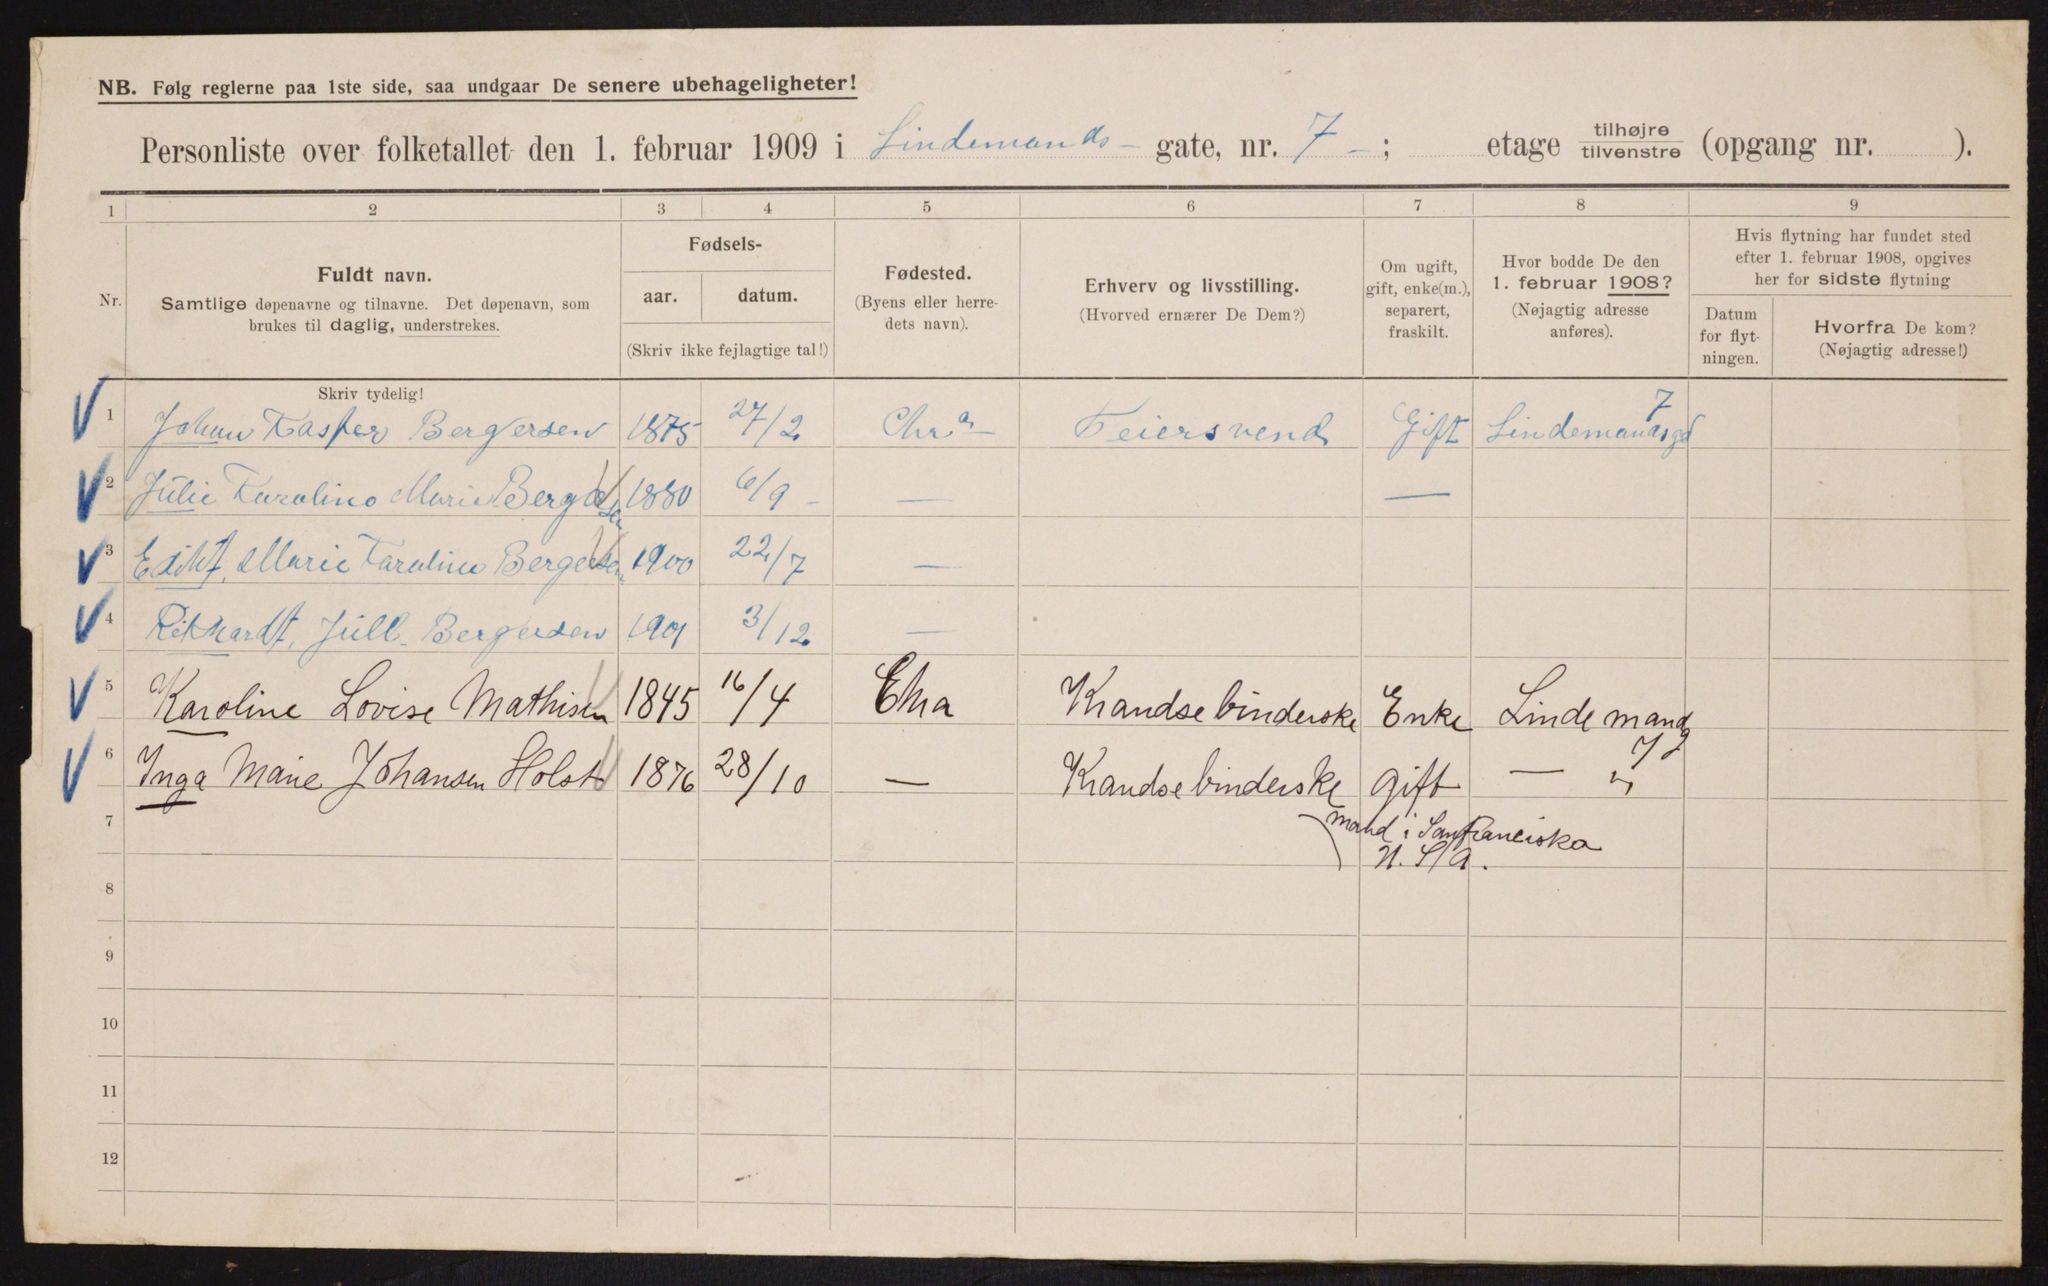 NB. Følg reglerne paa 1ste side, saa undgaar De senere ubehageligheter!
Personliste over folketallet den 1. februar 1909 i Lindemands- gate, nr. 7 - ; etage tilhøjre/tilvenstre (opgang nr. ).
1 2 3 4 5 6 7 8 9
Nr.
Fuldt navn.
Samtlige døpenavne og tilnavne. Det døpenavn, som
brukes til daglig, understrekes.
Fødsels-
aar. datum.
(Skriv ikke fejlagtige tal!)
Fødested.
(Byens eller herre-
dets navn).
Erhverv og livsstilling.
(Hvorved ernærer De Dem?)
Om ugift,
gift, enke(m.),
separert,
fraskilt.
Hvor bodde De den
1. februar 1908?
(Nøjagtig adresse
anføres).
Hvis flytning har fundet sted
efter 1. februar 1908, opgives
her for sidste flytning
Datum
for flyt-
ningen.
Hvorfra De kom?
(Nøjagtig adresse!)
Skriv tydelig!
1 Johan Kasper Bergersen 1875 27/2 Chr a Feiersvend Gift Lindemandsgd 7
2 Julie Karoline Marie Bergersen 1880 6/9 - — —
3 Edith Marie Karoline Bergersen 1900 22/7 —
4 Jull Bergersen 1901 3/12 —
5 Karoline Lovise Mathisen 1845 16/4 Chra Krandsebinderske Enke Lindemandg 7
6 Inga Marie Johansen Holst 1876 28/10 — Krandsebinderske gift — "
7 (mand i San Franciska
U. S. A.
8
9
10
11
12